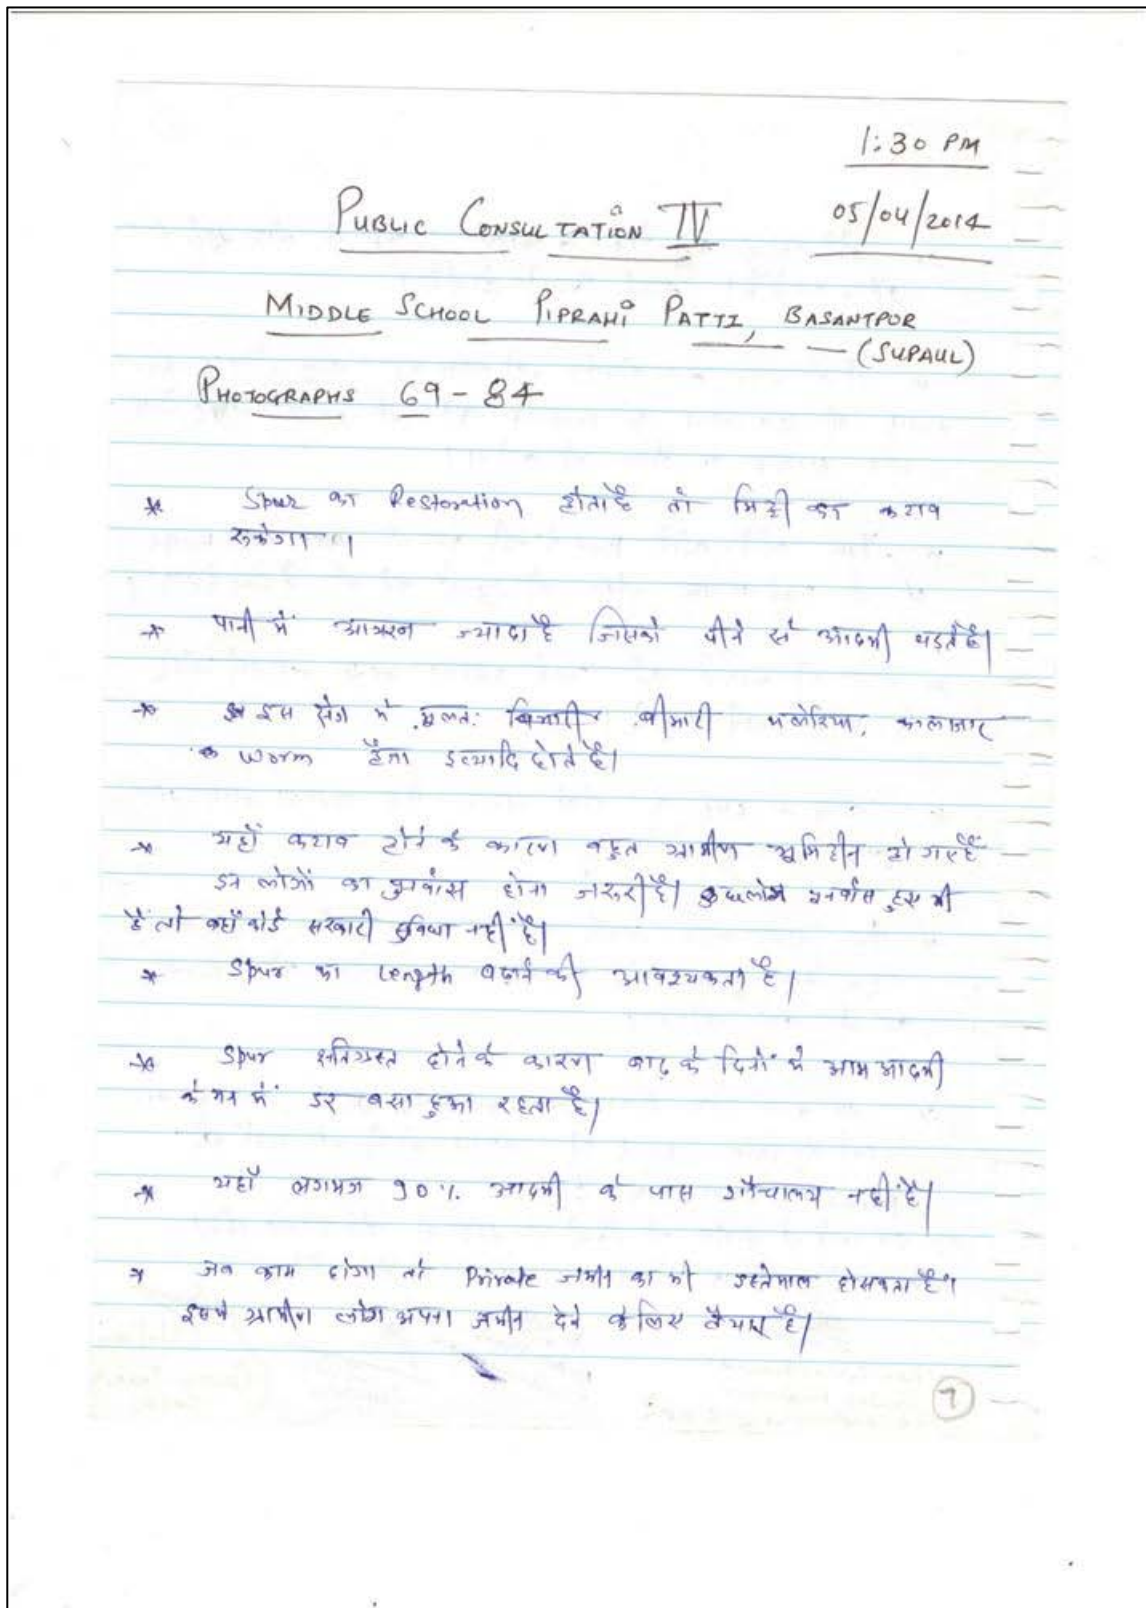 1:30 PM
PUBLIC CONSULTATION IV 05/04/2014
MIDDLE SCHOOL PIPRAHI PATTI, BASANTPUR
— (SUPAUL)
PHOTOGRAPHS 69-84
* Spur का Restoration होता है तो मिट्टी का कटाव
रूकेगा ।
* पानी में आयरन ज्यादा है जिसको पीने से आदमी पड़ते है।
* इस क्षेत्र में मूलतः बीमारी मलेरिया, कालाजार
worm हैजा इत्यादि होते है।
* यहाँ कटाव होने के कारण बहुत ग्रामीण भूमिहीन हो गए हैं
इन लोगों का पुनर्वास होना जरूरी है। कुछ लोग पुनर्वास हुए भी
है तो वहाँ कोई सरकारी सुविधा नहीं है।
* Spur का Length बढ़ाने की आवश्यकता है।
* Spur क्षतिग्रस्त होने के कारण बाढ़ के दिनों में आम आदमी
के मन में डर बसा हुआ रहता है।
* यहाँ लगभग 90% आदमी के पास शौचालय नहीं है।
* जब काम होगा तो Private जमीन का भी इस्तेमाल हो सकता है।
इसमे ग्रामीण लोग अपना जमीन देने के लिए तैयार है।
7